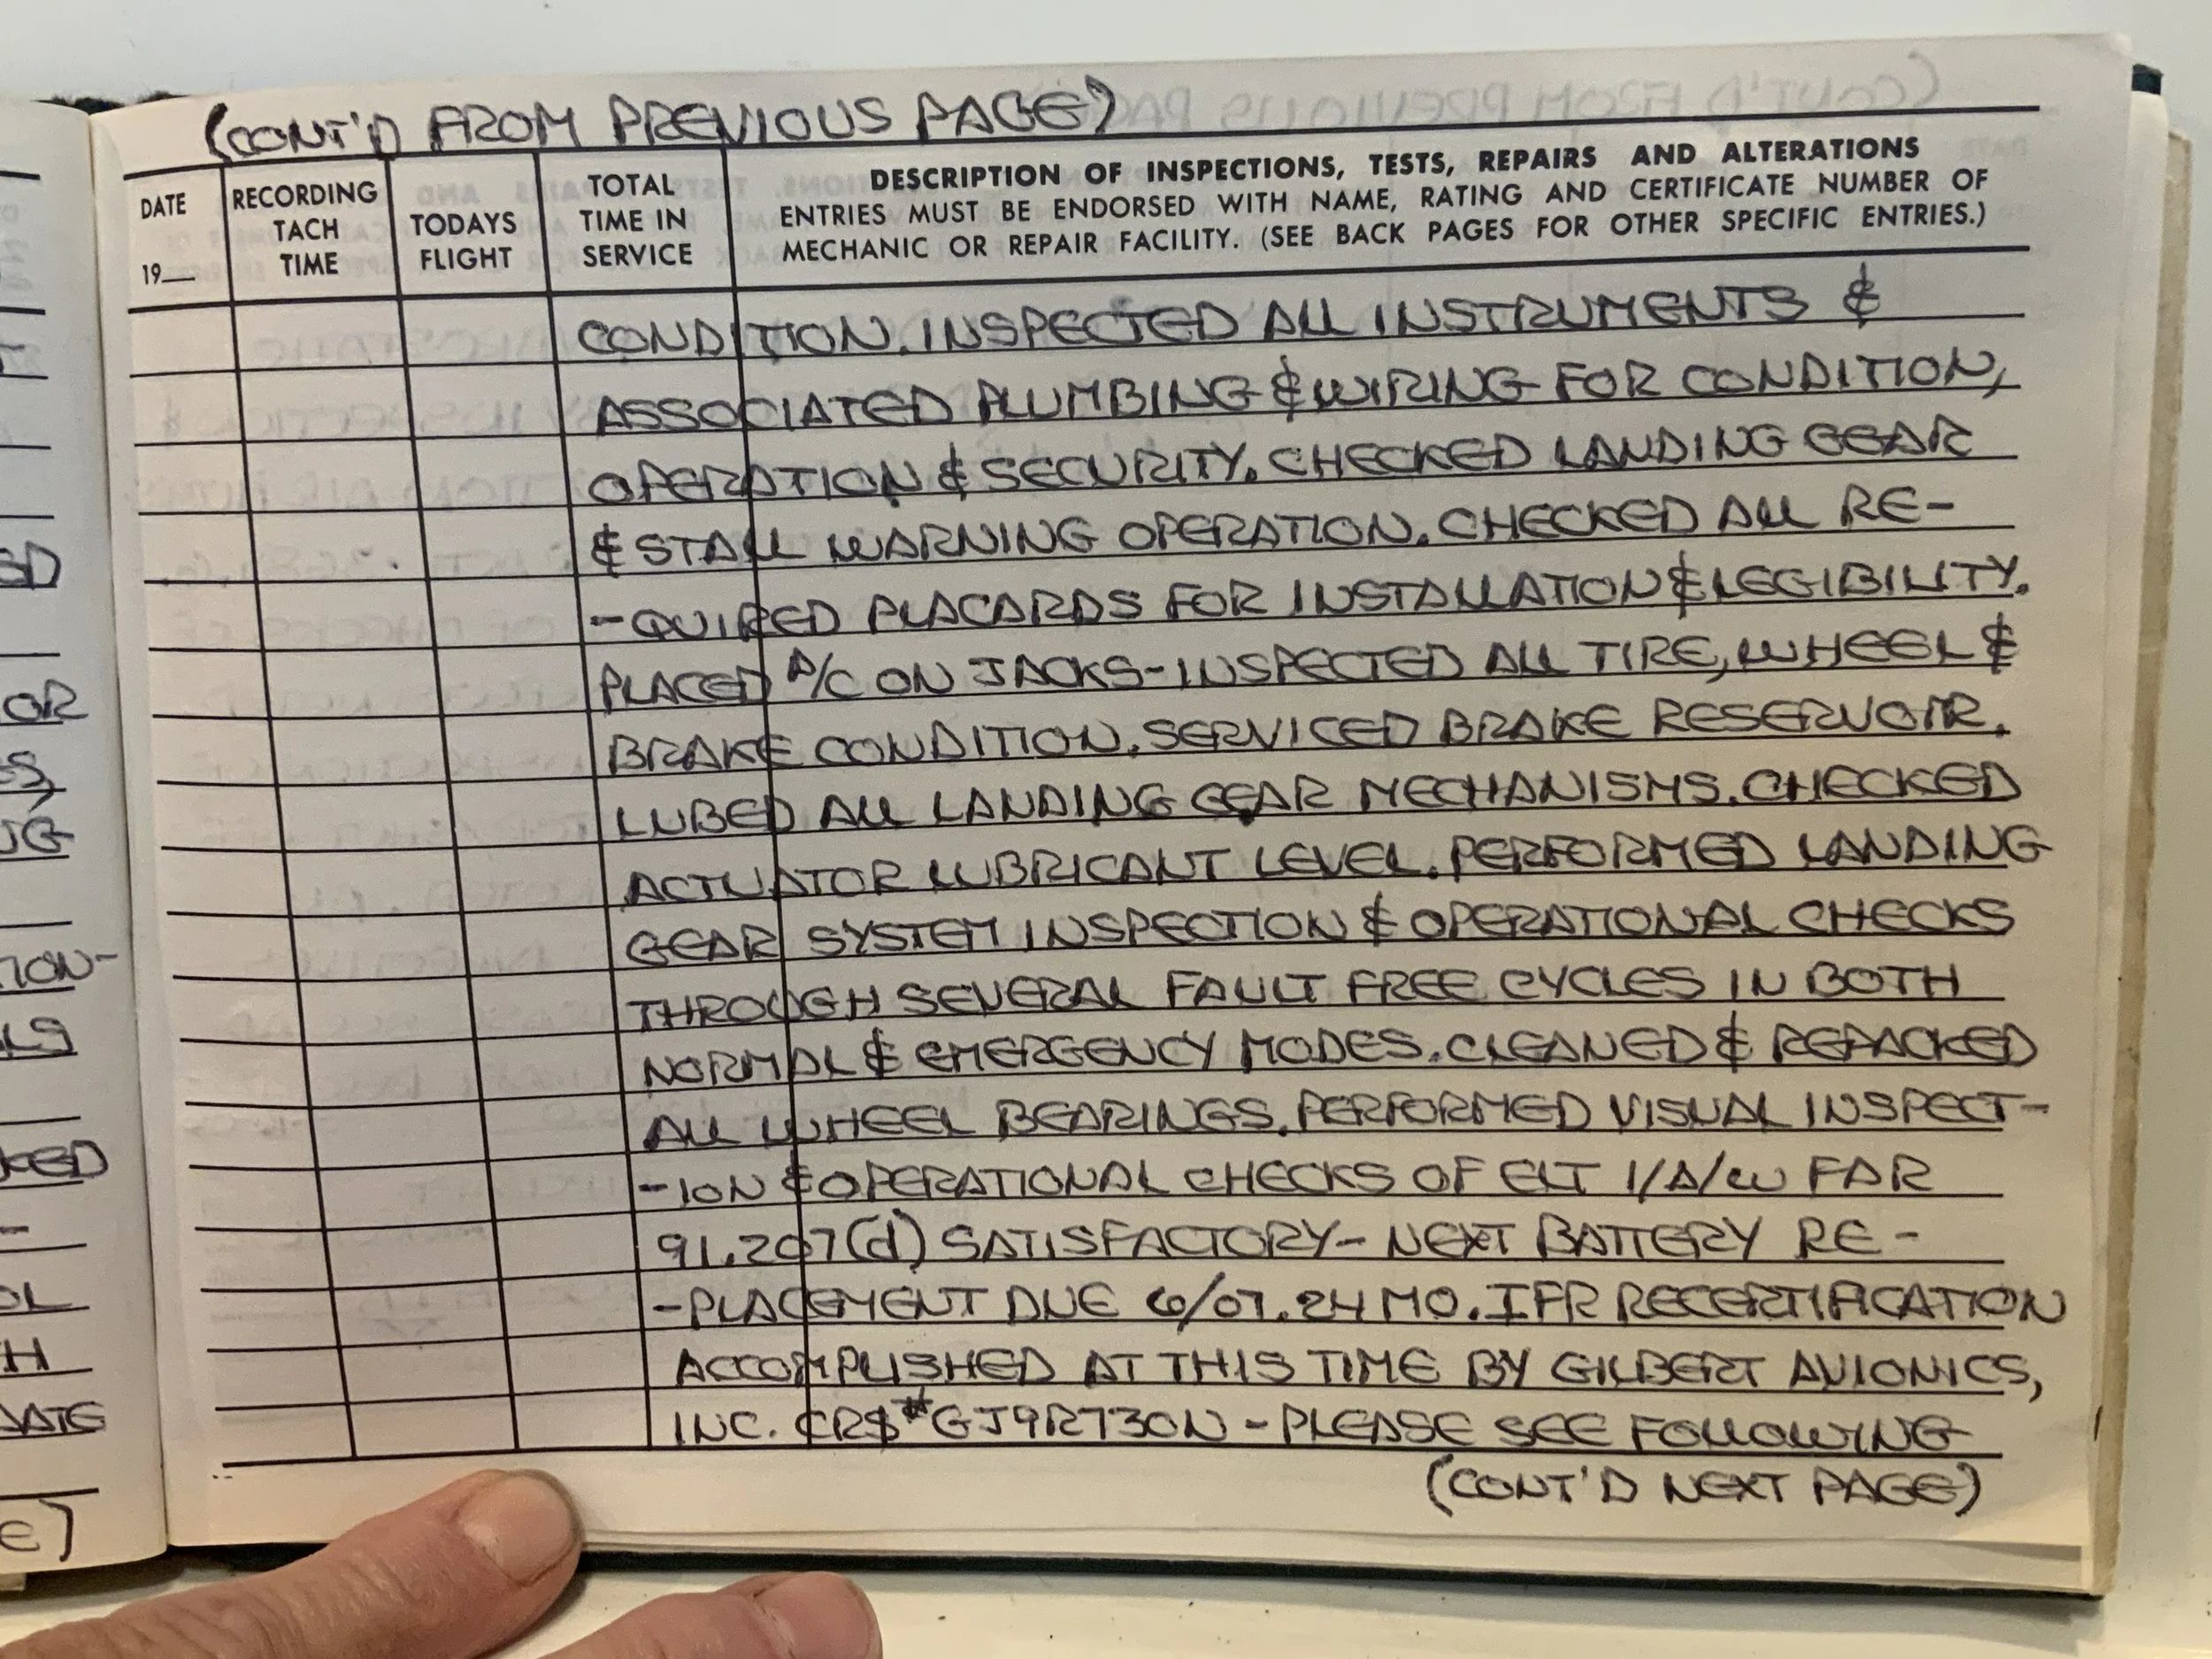 (CONT'D FROM PREVIOUS PAGE)
DATE
19__
RECORDING
TACH
TIME
TODAYS
FLIGHT
TOTAL
TIME IN
SERVICE
DESCRIPTION OF INSPECTIONS, TESTS, REPAIRS AND ALTERATIONS
ENTRIES MUST BE ENDORSED WITH NAME, RATING AND CERTIFICATE NUMBER OF
MECHANIC OR REPAIR FACILITY. (SEE BACK PAGES FOR OTHER SPECIFIC ENTRIES.)
CONDITION. INSPECTED ALL INSTRUMENTS &
ASSOCIATED PLUMBING & WIRING FOR CONDITION,
OPERATION & SECURITY. CHECKED LANDING GEAR
& STALL WARNING OPERATION. CHECKED ALL RE-
-QUIRED PLACARDS FOR INSTALLATION & LEGIBILITY.
PLACED A/C ON JACKS-INSPECTED ALL TIRE, WHEEL &
BRAKE CONDITION. SERVICED BRAKE RESERVOIR.
LUBED ALL LANDING GEAR MECHANISMS. CHECKED
ACTUATOR LUBRICANT LEVEL. PERFORMED LANDING
GEAR SYSTEM INSPECTION & OPERATIONAL CHECKS
THROUGH SEVERAL FAULT FREE CYCLES IN BOTH
NORMAL & EMERGENCY MODES. CLEANED & REPACKED
ALL WHEEL BEARINGS. PERFORMED VISUAL INSPECT-
-ION & OPERATIONAL CHECKS OF ELT I/A/W FAR
91.207(d) SATISFACTORY- NEXT BATTERY RE-
-PLACEMENT DUE 6/07. 24 MO. IFR RECERTIFICATION
ACCOMPLISHED AT THIS TIME BY GILBERT AVIONICS,
INC. CRS# GJ9R730N - PLEASE SEE FOLLOWING
(CONT'D NEXT PAGE)